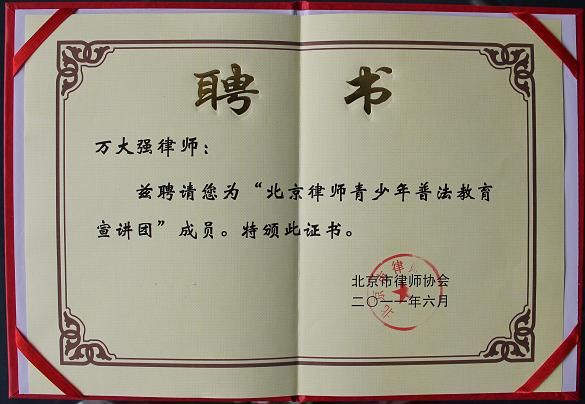 聘书
万大强律师：
兹聘请您为“北京律师青少年普法教育
宣讲团”成员。特颁此证书。
北京市律师协会
二〇一一年六月